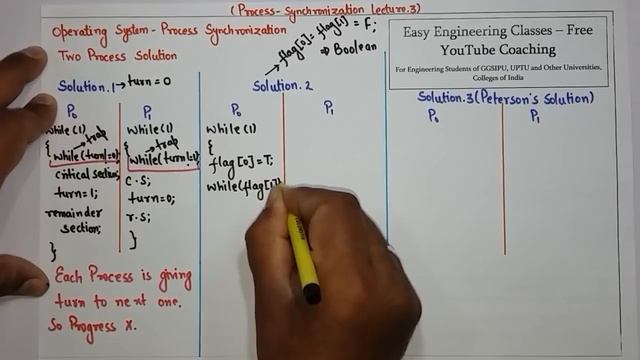 (Process-Synchronization lecture.3)
Operating System - Process Synchronization
Two Process Solution
Solution.1 → turn = 0
P0
while(1)
{ → trap
while(turn!=0);
critical section;
turn=1;
remainder
section;
}
P1
while(1)
{ → trap
while(turn!=1);
C.S;
turn=0;
r.s;
}
Each Process is giving
turn to next one.
So Progress X.
→ flag[0]=flag[1] = F;
⇒ Boolean
Solution.2
P0
while(1)
{
flag[0]=T;
while(flag[1])
P1
Easy Engineering Classes – Free
YouTube Coaching
For Engineering Students of GGSIPU, UPTU and Other Universities,
Colleges of India
Solution.3 (Peterson's Solution)
P0
P1